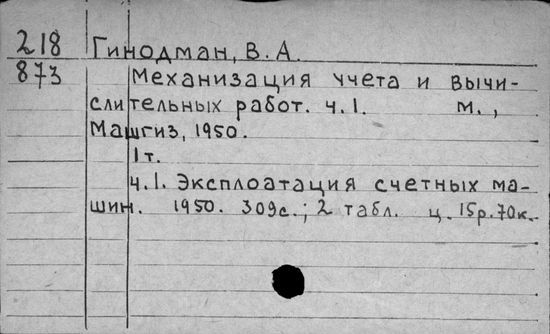 218 Гинодман, В. А.
873 Механизация учета и вычи-
слительных работ. ч.1. М.,
Машгиз, 1950.
1 т.
ч.1. Эксплоатация счетных ма-
шин. 1950. 309с.; 2 табл. ц. 15р.70к.